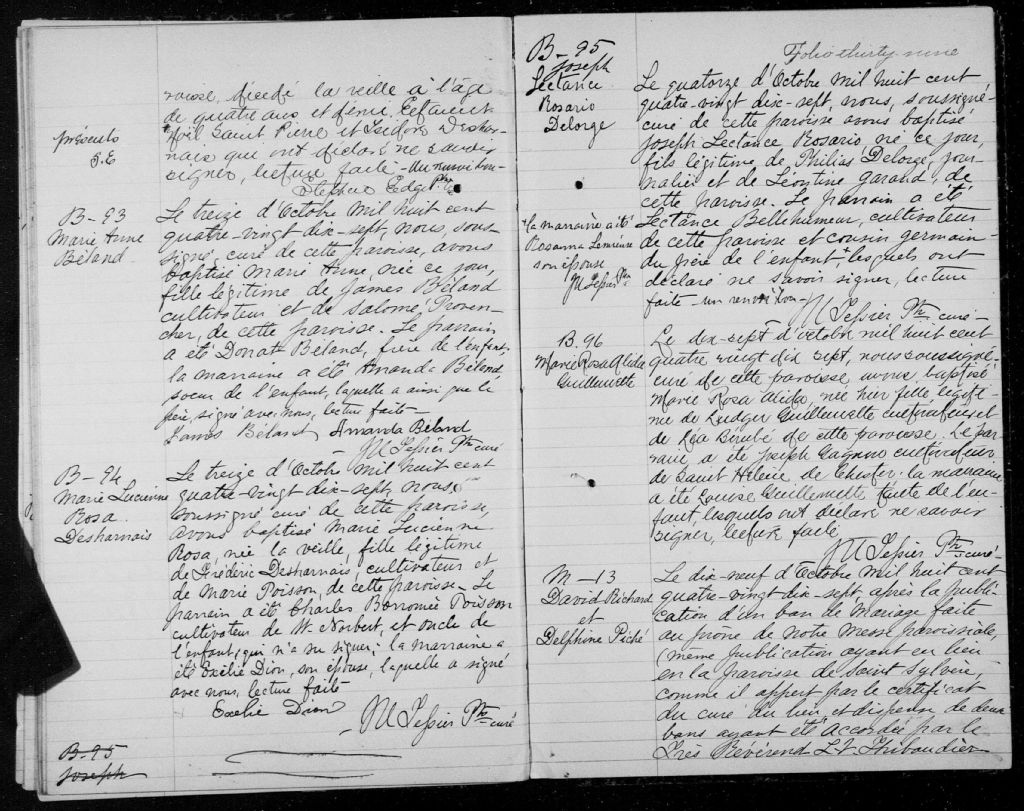 roisse, décédé la veille à l'âge
de quatre ans et demi. Présents
Noël Saint Pierre et Isidore Deshar-
nais qui ont déclaré ne savoir
signer, lecture faite - Un renvoi bon -
Ptre
présents
B - 93
Marie Anne
Béland
Le treize d'Octobre mil huit cent
quatre-vingt dix-sept, nous, sous-
signé, curé de cette paroisse, avons
baptisé Marie Anne, née ce jour,
fille légitime de James Béland
cultivateur et de Salomé Proven-
cher, de cette paroisse. Le parrain
a été Donat Béland, frère de l'enfant,
la marraine a été Amanda Béland
soeur de l'enfant, laquelle a ainsi que le
père, signé avec nous, lecture faite -
James Béland Amanda Béland
JU Tessier Ptre curé
B - 94
Marie Lucienne
Rosa
Desharnais
Le treize d'Octobre mil huit cent
quatre-vingt dix-sept, nous,
soussigné curé de cette paroisse,
avons baptisé Marie Lucienne
Rosa, née la veille, fille légitime
de Frédéric Desharnais, cultivateur et
de Marie Poisson, de cette paroisse. Le
parrain a été Charles Borromée Poisson
cultivateur de St. Norbert, et oncle de
l'enfant, qui n'a su signer; la marraine a
été Exélie Dion, son épouse, laquelle a signé
avec nous, lecture faite
Exelie Dion
JU Tessier Ptre curé
B - 95
Joseph
Folio thirty-nine
B - 95
Joseph
Lectance
Rosario
Delorge
Le quatorze d'Octobre mil huit cent
quatre-vingt dix-sept, nous, soussigné
curé de cette paroisse avons baptisé
Joseph Lectance Rosario né ce jour,
fils légitime de Philias Delorge, jour-
nalier et de Léontine Garand, de
cette paroisse. Le parrain a été
Lectance Bellehumeur, cultivateur
de cette paroisse et cousin germain
du père de l'enfant, + lesquels ont
déclaré ne savoir signer, lecture
faite - un renvoi bon -
JU Tessier Ptre curé -
+ la marraine a été
Rosanna Lemire
son épouse
JU Tessier Ptre
B. 96
Marie Rosa Alida
Guillemette
Le dix-sept d'octobre mil huit cent
quatre vingt dix sept, nous soussigné
curé de cette paroisse, avons baptisé
Marie Rosa Alida, née hier fille légiti-
me de Ludger Guillemette cultivateur et
de Léa Bérubé de cette paroisse. Le par-
rain, a été Joseph Gagnon cultivateur
de Saint Hélène de Chester: la marraine
a été Louise Guillemette tante de l'en-
fant, lesquels ont déclaré ne savoir
signer, lecture faite
JU Tessier Ptre curé -
M - 13
David Richard
et
Delphine Piché
Le dix-neuf d'Octobre mil huit cent
quatre-vingt dix-sept, après la publi-
cation d'un ban de mariage faite
au prone de notre messe paroissiale,
(même publication ayant eu lieu
en la paroisse de Saint Sylvère,
comme il appert par le certificat
du curé du lieu, et dispense de deux
bans ayant été accordée par le
Très Révérend